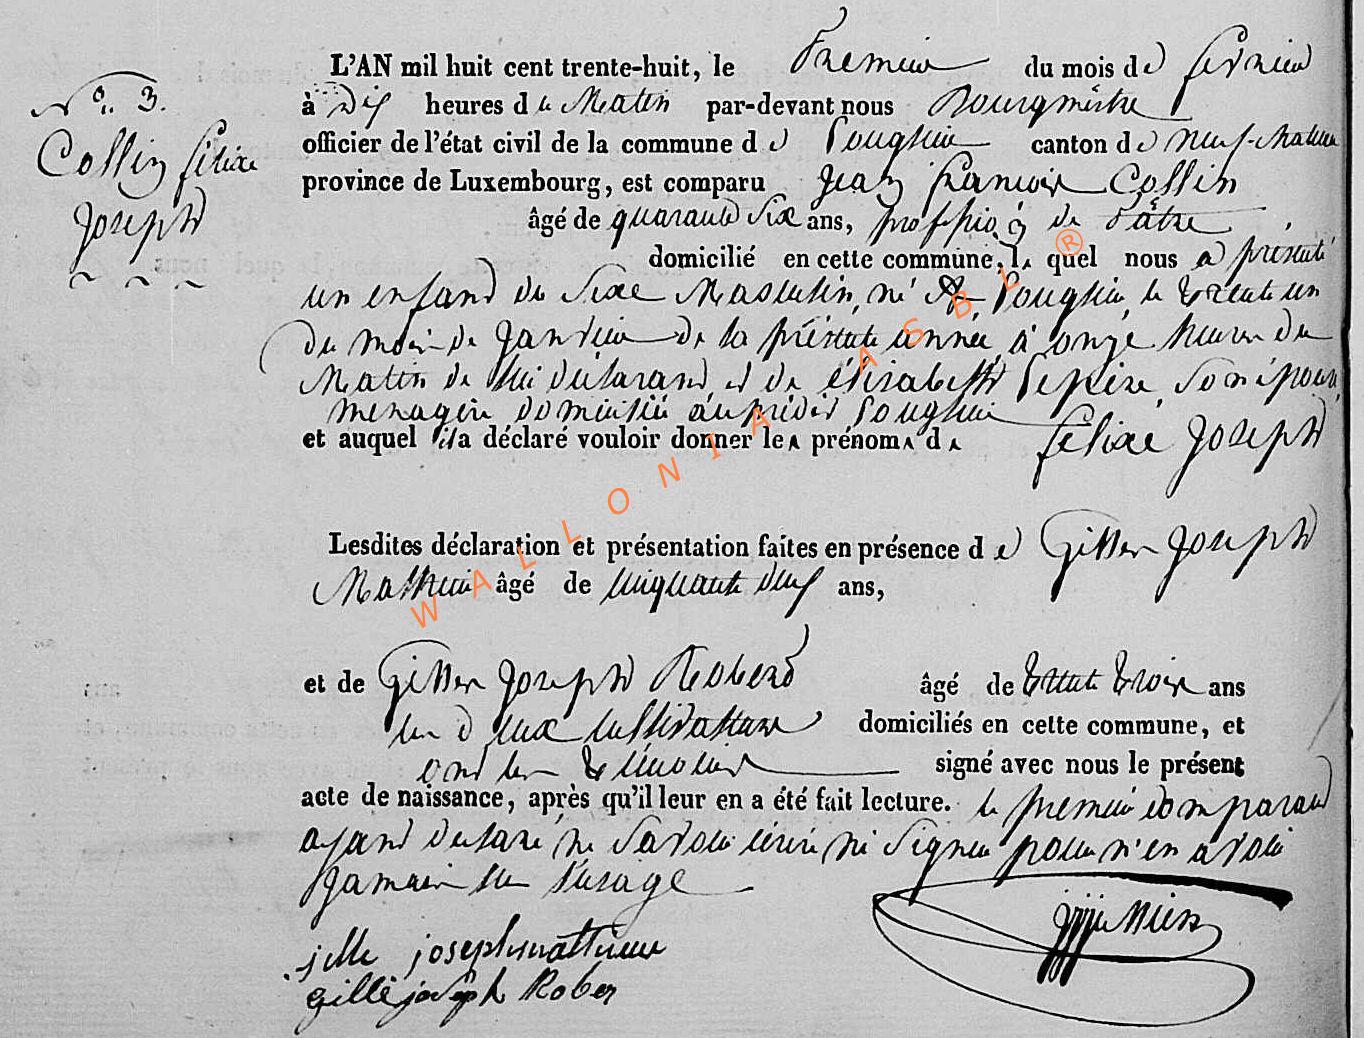 N° 3.
Collin félixe
Joseph
L'AN mil huit cent trente-huit, le Premier du mois de fevrier
à Dix heures du Matin par-devant nous Bourgmêstre
officier de l'état civil de la commune de canton de neufchateau
province de Luxembourg, est comparu Jean francois Collin
âgé de quarante Six ans, proffession de Pâtre
domicilié en cette commune, le quel nous a présenté
un enfand du Sixe Masculin, né le trente un
du mois de Janvier de la présente année à onze heures du
Matin de lui déclarand et de élisabeth Son épouse
menagère domicilié au prédit
et auquel il a déclaré vouloir donner les prénoms de félixe Joseph
Lesdites déclaration et présentation faites en présence de Gilles Joseph
Mathieu âgé de cinquante deux ans,
et de Gilles Joseph Roberd âgé de trente trois ans
les d'eux cultivateurs domiciliés en cette commune, et
ond les témoins signé avec nous le présent
acte de naissance, après qu'il leur en a été fait lecture. le premier comparand
ayand déclaré ne Savoir écrire ni Signer pour n'en avoir
Jamais eu l'usage
jille joseph mathieux
gille joseph Rober
WALLONIA ASBL ®